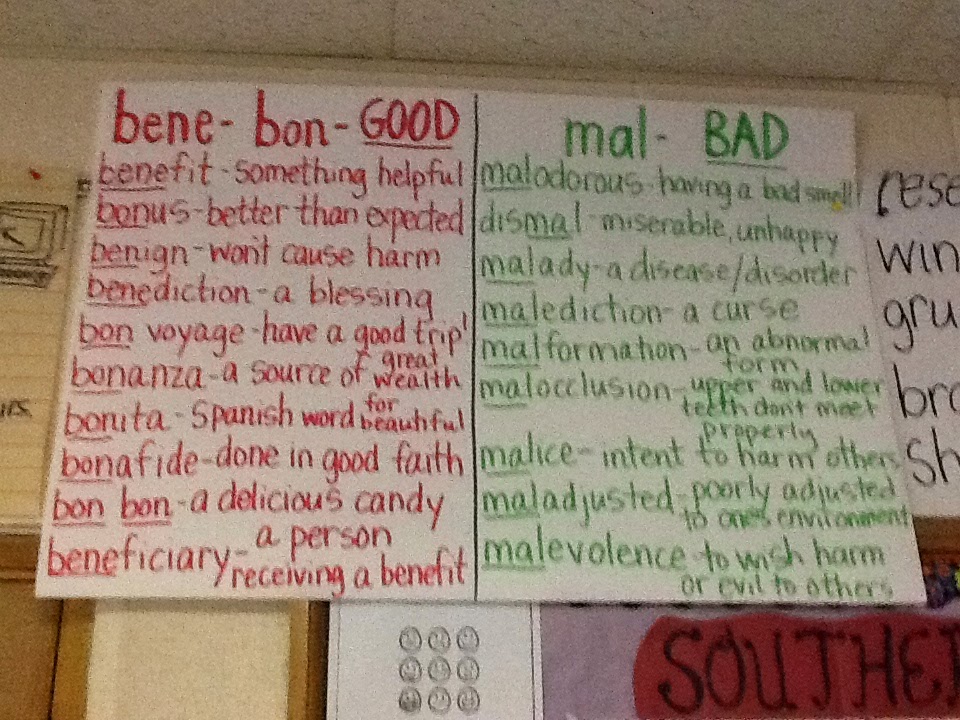 bene- bon- GOOD
benefit - something helpful
bonus - better than expected
benign - won't cause harm
benediction - a blessing
bon voyage - have a good trip!
bonanza - a source of great wealth
bonita - Spanish word for beautiful
bonafide - done in good faith
bon bon - a delicious candy
beneficiary - a person
receiving a benefit
mal- BAD
malodorous - having a bad smell!
dismal - miserable, unhappy
malady - a disease/disorder
malediction - a curse
malformation - an abnormal
form
malocclusion - upper and lower
teeth don't meet
properly
malice - intent to harm others
maladjusted - poorly adjusted
to one's environment
malevolence to wish harm
or evil to others
rese
win
gru
bro
sh
SOUTHE